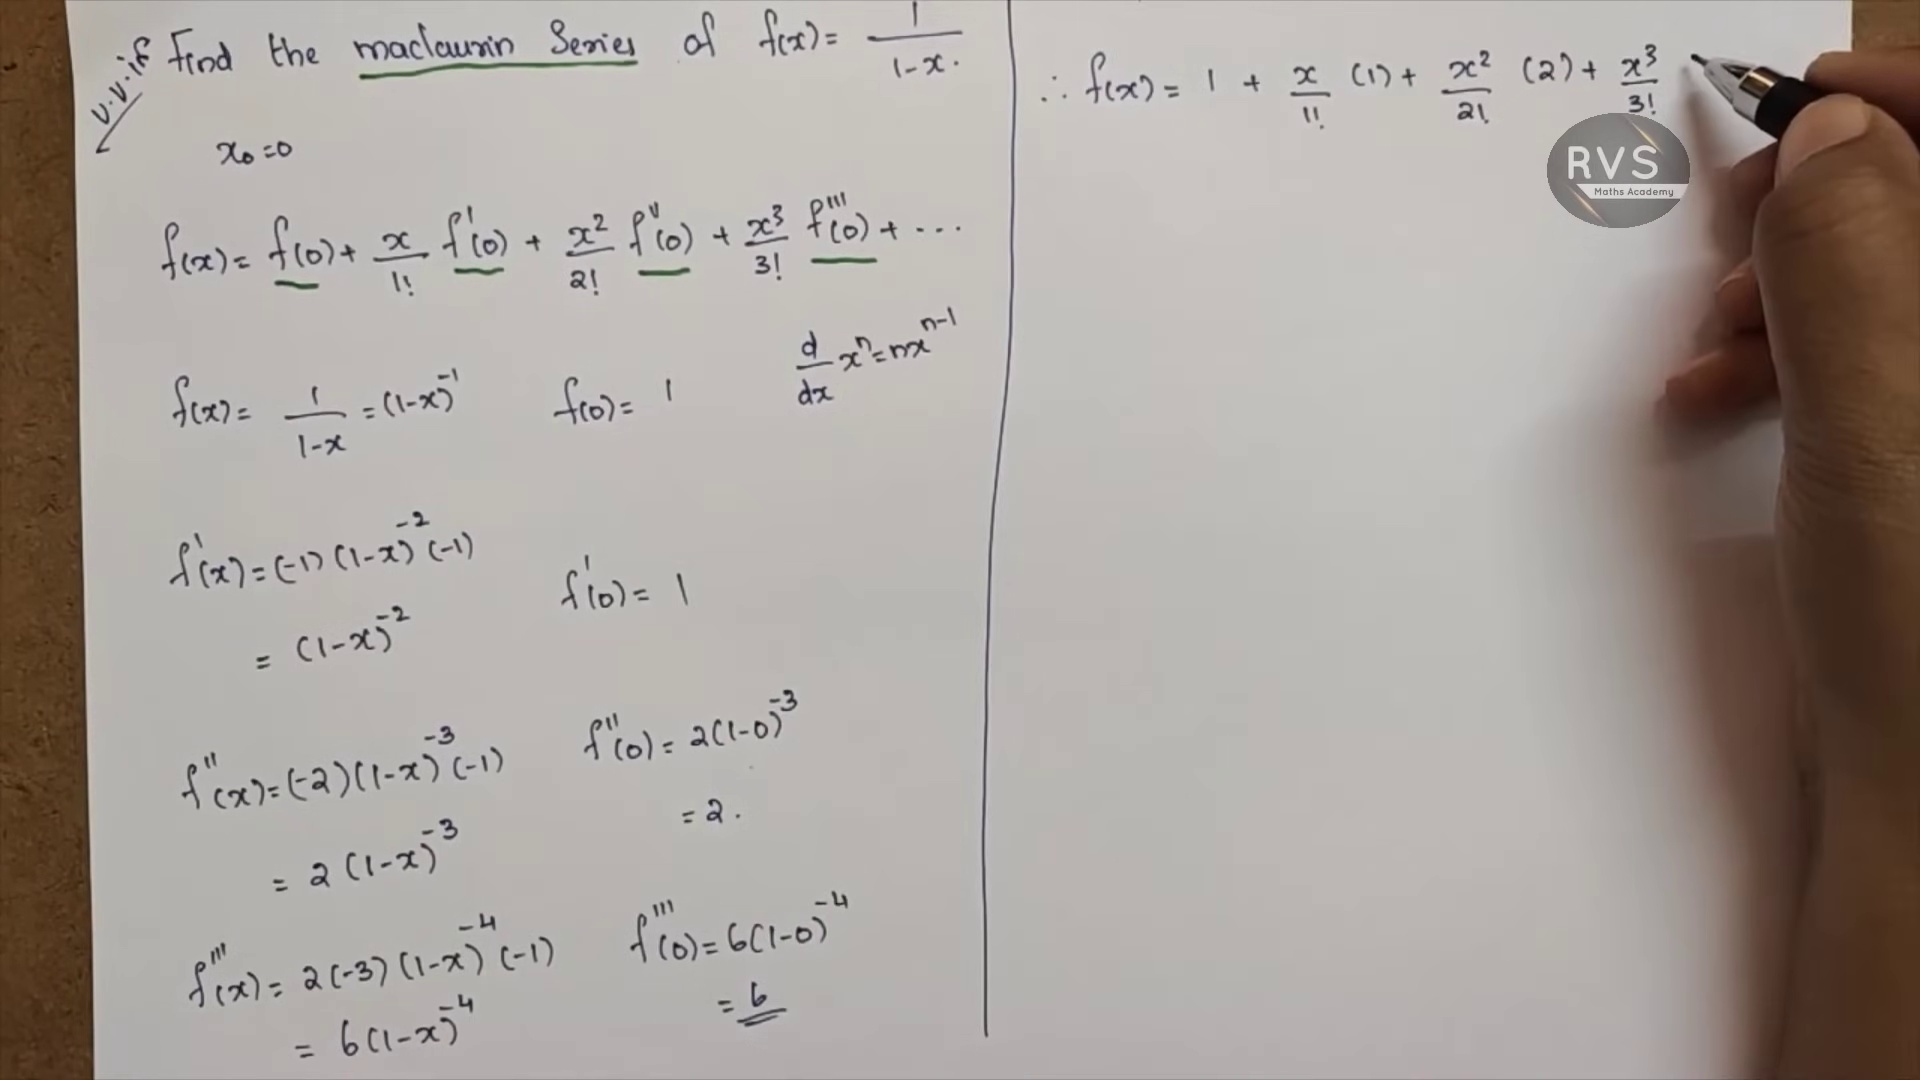 v.v.if Find the maclaurin Series of f(x)= 1/1-x.
x₀=0
f(x)= f(0)+ x/1! f'(0) + x²/2! f''(0) + x³/3! f'''(0) + ...
d/dx xⁿ=nxⁿ⁻¹
f(x)= 1/1-x =(1-x)⁻¹ f(0)= 1
f'(x)=(-1)(1-x)⁻²(-1)
= (1-x)⁻² f'(0)= 1
f''(x)=(-2)(1-x)⁻³(-1) f''(0)= 2(1-0)⁻³
= 2(1-x)⁻³ =2.
f'''(x)= 2(-3)(1-x)⁻⁴(-1) f'''(0)=6(1-0)⁻⁴
= 6(1-x)⁻⁴ =6
∴ f(x)= 1 + x/1! (1)+ x²/2! (2)+ x³/3!
RVS
Maths Academy